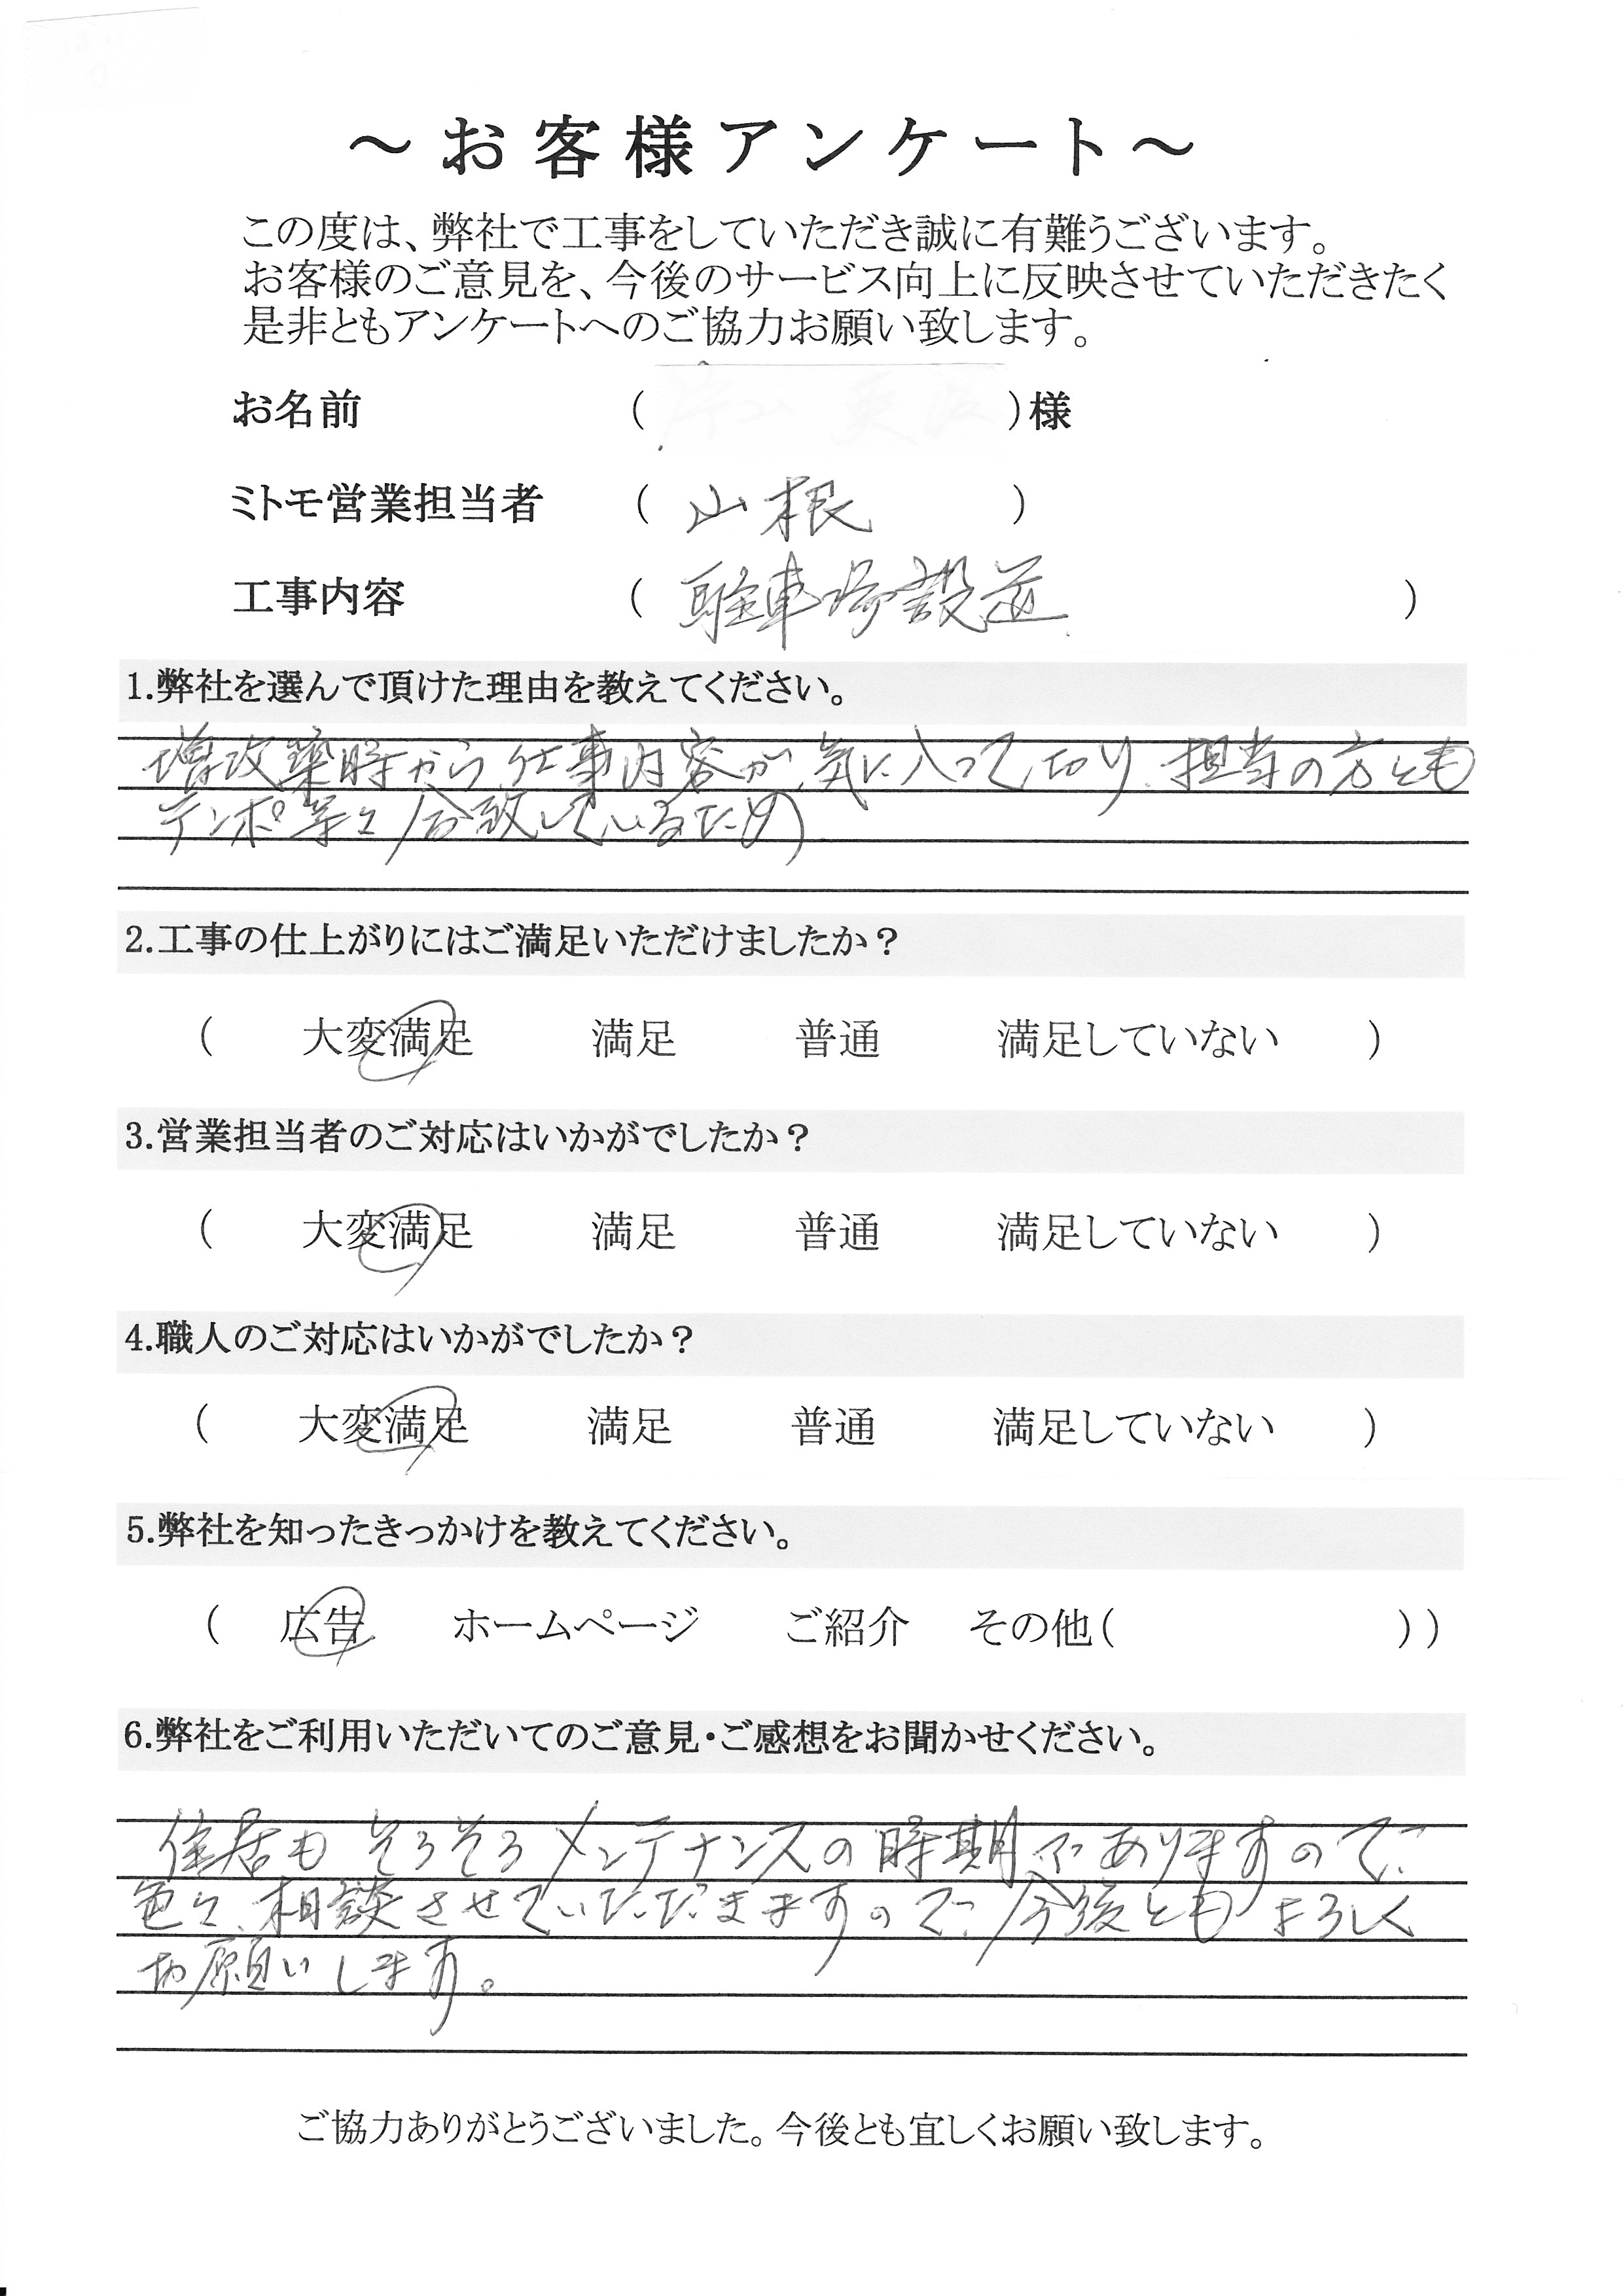 ～お客様アンケート～
この度は、弊社で工事をしていただき誠に有難うございます。
お客様のご意見を、今後のサービス向上に反映させていただきたく
是非ともアンケートへのご協力お願い致します。
お名前 ( )様
ミトモ営業担当者 ( 山根 )
工事内容 ( 駐車場設置 )
1.弊社を選んで頂けた理由を教えてください。
増改築時から仕事内容が気に入っており、担当の方とも
テンポ等々合致しているため
2.工事の仕上がりにはご満足いただけましたか？
( 大変満足 満足 普通 満足していない )
3.営業担当者のご対応はいかがでしたか？
( 大変満足 満足 普通 満足していない )
4.職人のご対応はいかがでしたか？
( 大変満足 満足 普通 満足していない )
5.弊社を知ったきっかけを教えてください。
( 広告 ホームページ ご紹介 その他( ) )
6.弊社をご利用いただいてのご意見・ご感想をお聞かせください。
住居もそろそろメンテナンスの時期でありますので
色々、相談させていただきますので、今後ともよろしく
お願いします。
ご協力ありがとうございました。今後とも宜しくお願い致します。